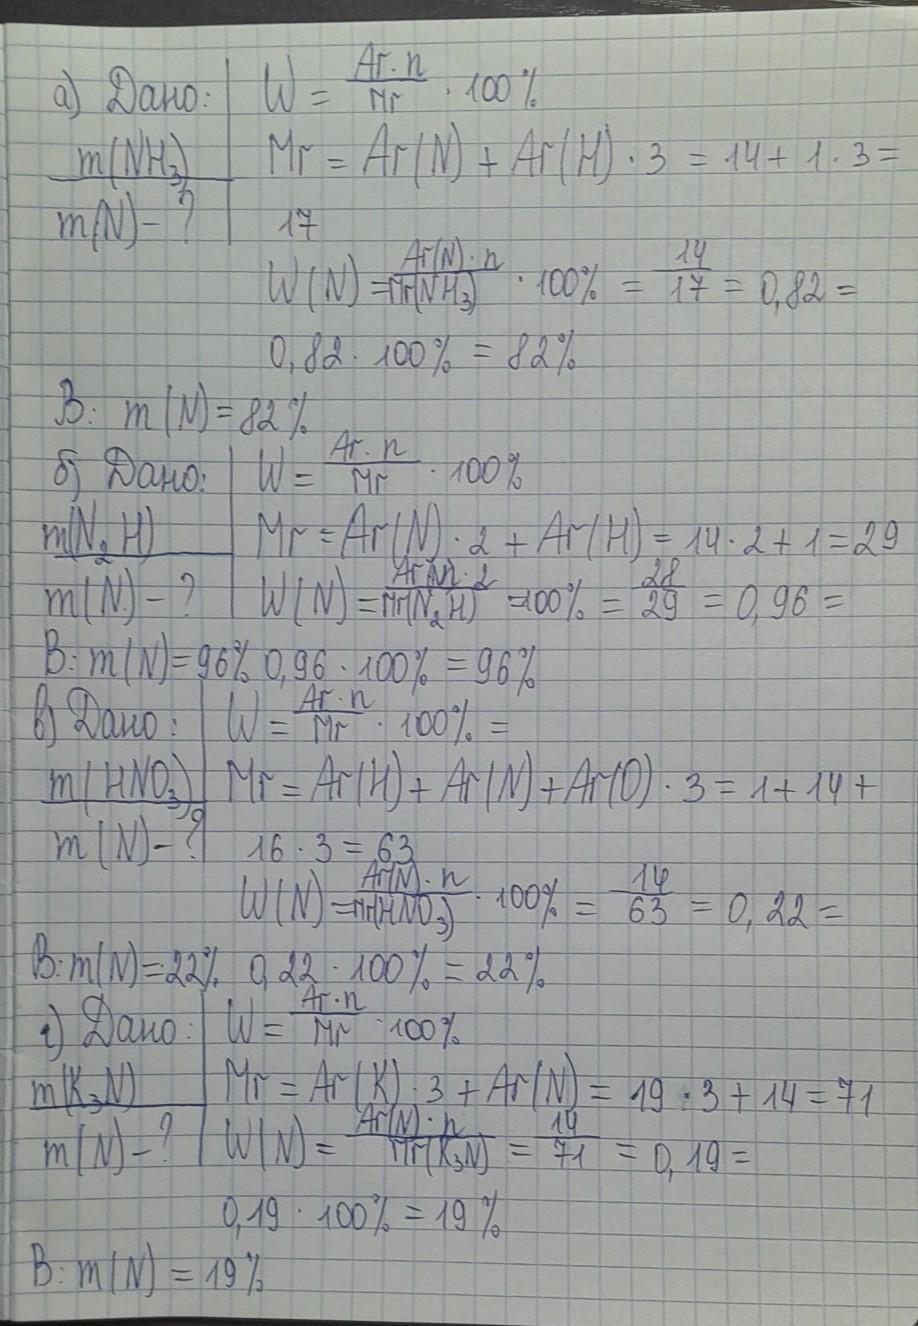 а) Дано: W = Ar·n/Mr · 100%
m(NH₃) Mr = Ar(N) + Ar(H) · 3 = 14 + 1 · 3 =
m(N) - ? 17
W(N) = Ar(N)·n/Mr(NH₃) · 100% = 14/17 = 0,82 =
0,82 · 100% = 82%
В: m(N) = 82%
б) Дано: W = Ar·n/Mr · 100%
m(N₂H) Mr = Ar(N) · 2 + Ar(H) = 14 · 2 + 1 = 29
m(N) - ? W(N) = Ar(N)·2/Mr(N₂H) =100% = 28/29 = 0,96 =
В: m(N) = 96% 0,96 · 100% = 96%
в) Дано: W = Ar·n/Mr · 100% =
m(HNO₃) Mr = Ar(H) + Ar(N) + Ar(O) · 3 = 1 + 14 +
m(N) - ? 16 · 3 = 63
W(N) = Ar(N)·n/Mr(HNO₃) · 100% = 14/63 = 0,22 =
В: m(N) = 22% 0,22 · 100% = 22%
г) Дано: W = Ar·n/Mr · 100%
m(K₃N) Mr = Ar(K) · 3 + Ar(N) = 19 · 3 + 14 = 71
m(N) - ? W(N) = Ar(N)·n/Mr(K₃N) = 14/71 = 0,19 =
0,19 · 100% = 19%
В: m(N) = 19%